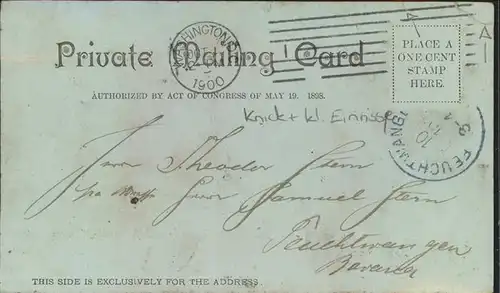 WASHINGTON
1900
Private Mailing Card
PLACE A
ONE CENT
STAMP
HERE.
AUTHORIZED BY ACT OF CONGRESS OF MAY 19. 1898.
Knick + kl. Einrisse
FEUCHTWANG
10
Herrn Theodor Stern
Herrn Samuel Stern
Feuchtwangen
Bavaria
THIS SIDE IS EXCLUSIVELY FOR THE ADDRESS.